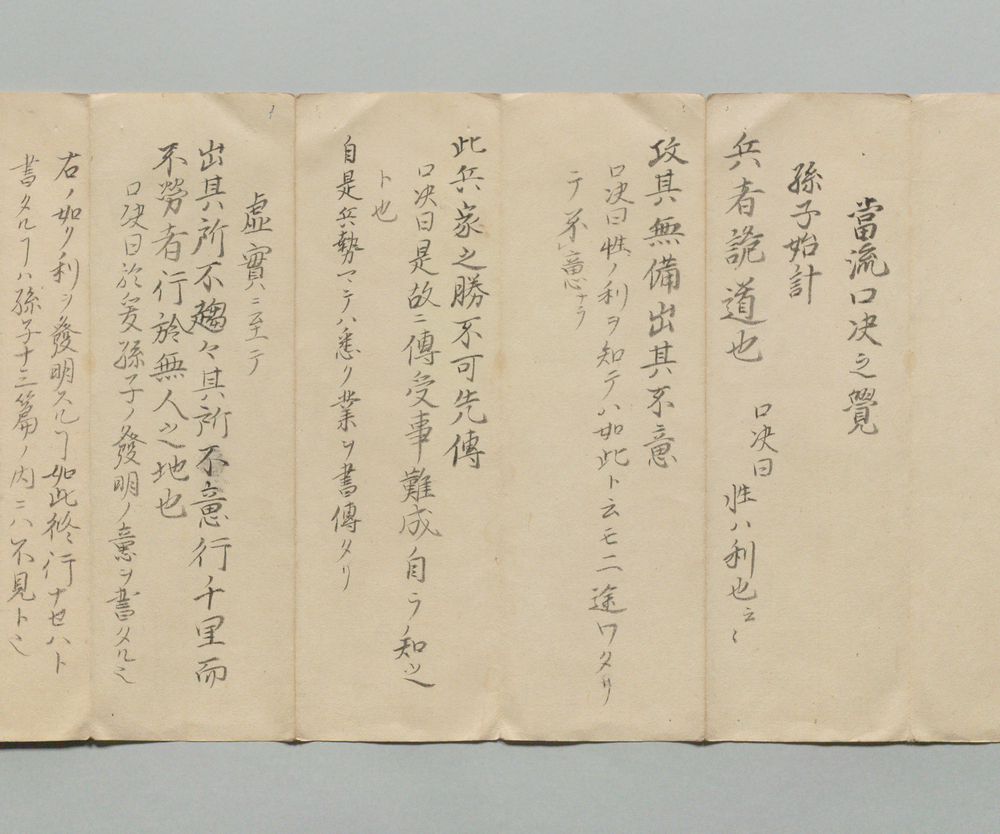 當流口决之覺
孫子始計
兵者詭道也
口决曰
性ハ利也云〻
攻其無備出其不意
口决曰性ノ利ヲ知テハ如此ト云モ二途ワタリ
テ不意ナラ
此兵家之勝不可先傳
口决曰是故ニ傳受事難成自ラノ知之
ト也
自是兵勢マテハ悉ク業ヲ書傳タリ
虛實ニ至テ
出其所不趨々其所不意行千里而
不勞者行於無人之地也
口决曰於爰孫子ノ發明ノ意ヲ書タル也
右ノ如ク利ヲ發明スルヿ如此修行ナセハト
書タルヿハ孫子十三篇ノ内ニハ不見ト也